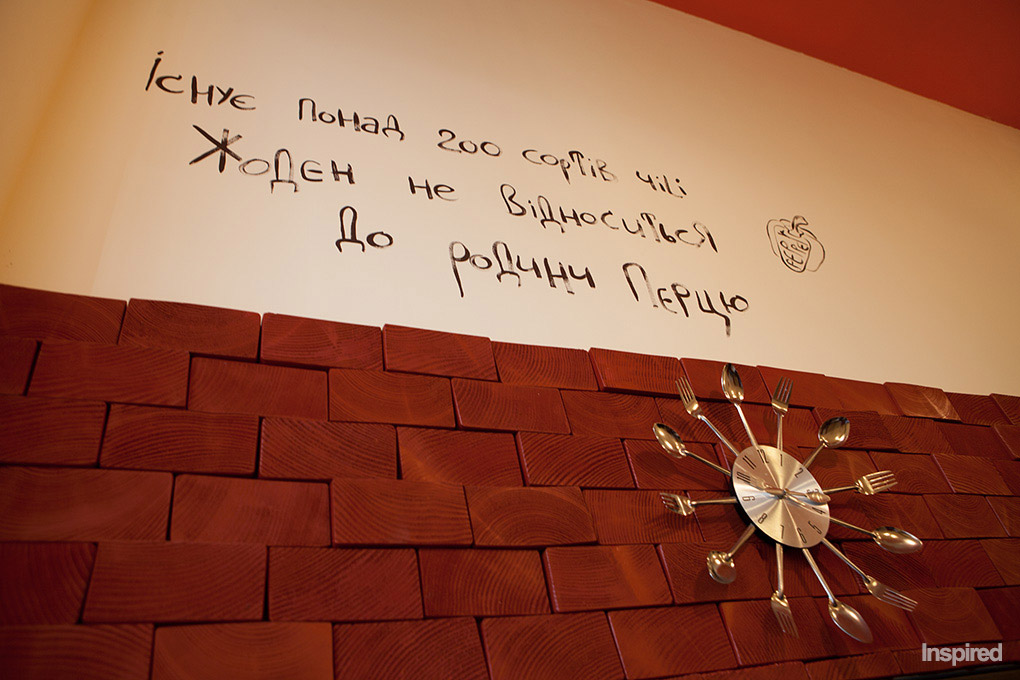 існує понад 200 сортів чілі
Жоден не відноситься
до родини Перцю
11 1 2 3 4 5 6 7 8 9 10
Inspired